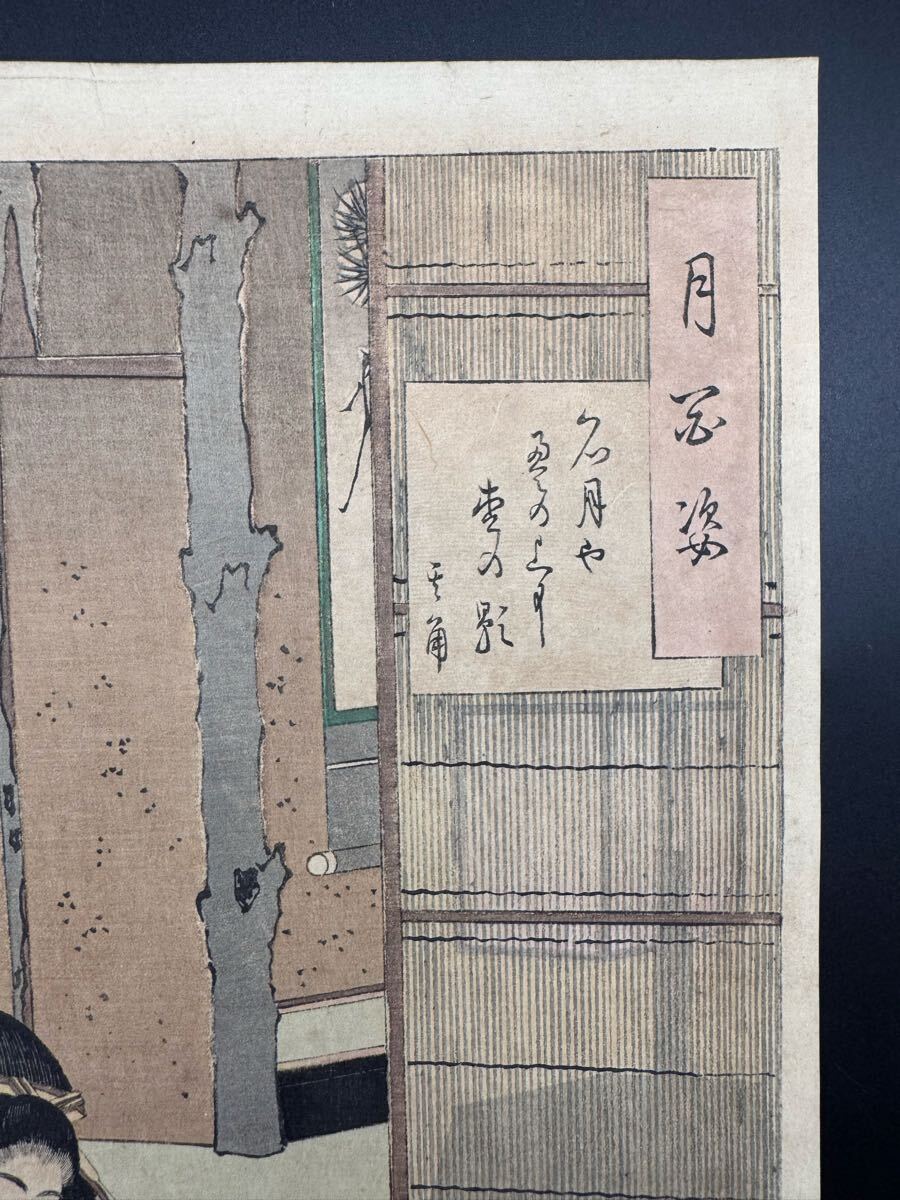 月百姿
名月や
畳の上に
松の影
其角